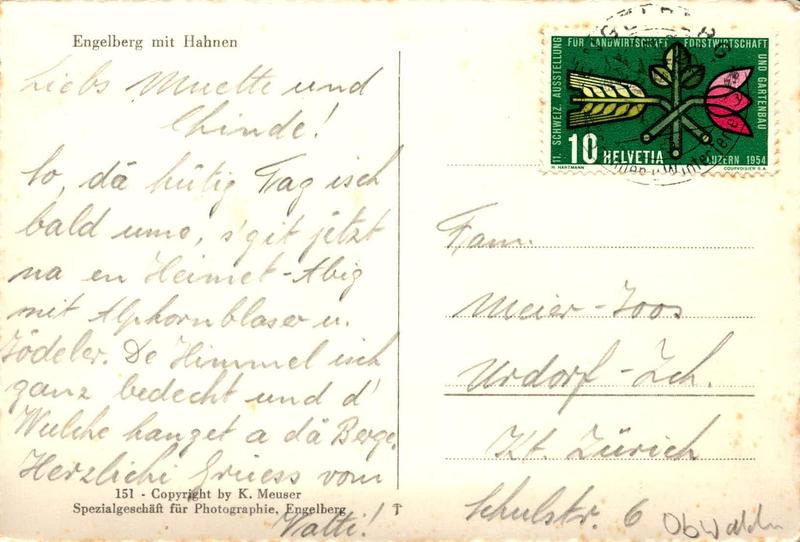 Engelberg mit Hahnen
Liebs Muetti und
Chinde!
So, dä hütig Tag isch
bald umo, s'git jetzt
na en Heimet-Abig
mit Alphornblaser u.
Jödeler. De Himmel isch
ganz bedecht und d'
Wulche hanget a dä Berge.
Herzlichi Grüess vom
Vatti!
151 - Copyright by K. Meuser
Spezialgeschäft für Photographie, Engelberg
11. SCHWEIZ. AUSSTELLUNG FÜR LANDWIRTSCHAFT FORSTWIRTSCHAFT UND GARTENBAU
10 HELVETIA LUZERN 1954
H. HARTMANN COURVOISIER S.A.
Fam.
Meier-Joos
Urdorf-Zch.
Kt. Zürich
Schulstr. 6
Obwalden